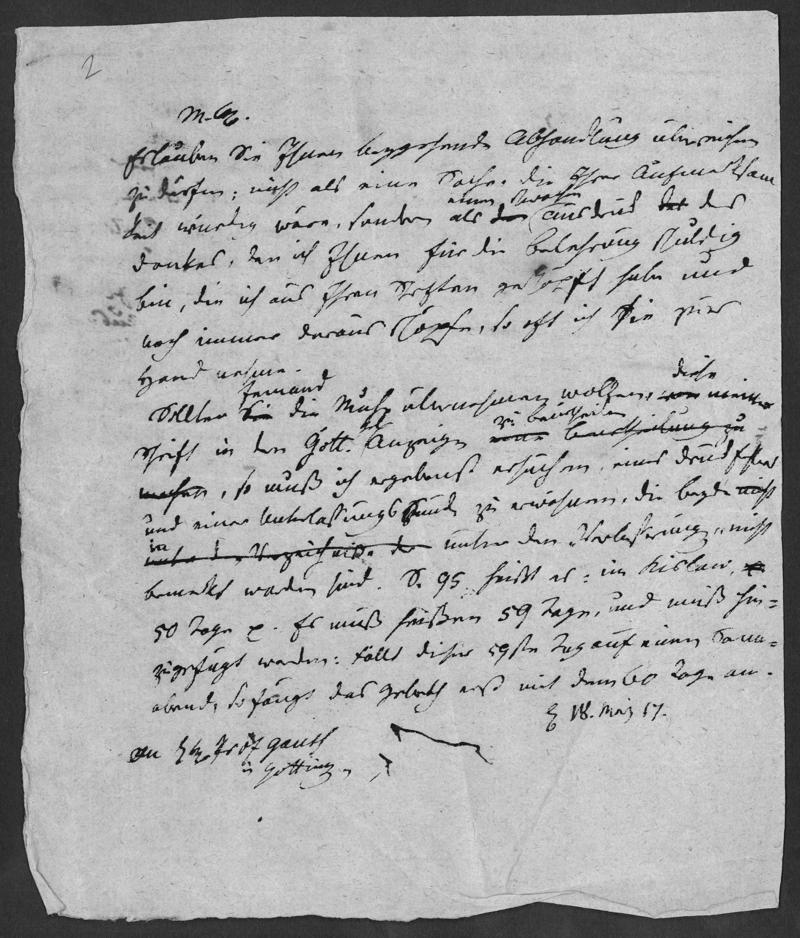 2
Erlauben Sie Ihnen beygehende Abhandlung überreichen
zu dürfen; nicht als eine Sache, die Ihrer Aufmerksam
keit würdig wäre, sondern als einen Ausdruck des
Dankes, den ich Ihnen für die Belehrung schuldig
bin, die ich aus Ihren geschöpft habe und
noch immer daraus schöpfe, so oft ich sie zur
Hand nehme.
Sollte Jemand die Mühe übernehmen wollen, diese
Schrift in den Gött. Anzeigen zu beurtheilen
so muß ich ergebenst ersuchen, eines Druckfehlers
und einer Unterlassungs Sünde zu erwähnen, die beyde nicht
unter den Verbesserungen
bemerkt worden sind. S. 95 heißt es: im Kislew,
50 Tage p. Es muß heißen 59 Tage, und muß hin=
zugefügt werden: fällt dieser 59ste Tag auf einen Sonn=
abend, so fängt das Gebeth erst mit dem 60 Tage an.
18. 17.
An Prof
in Göttingen